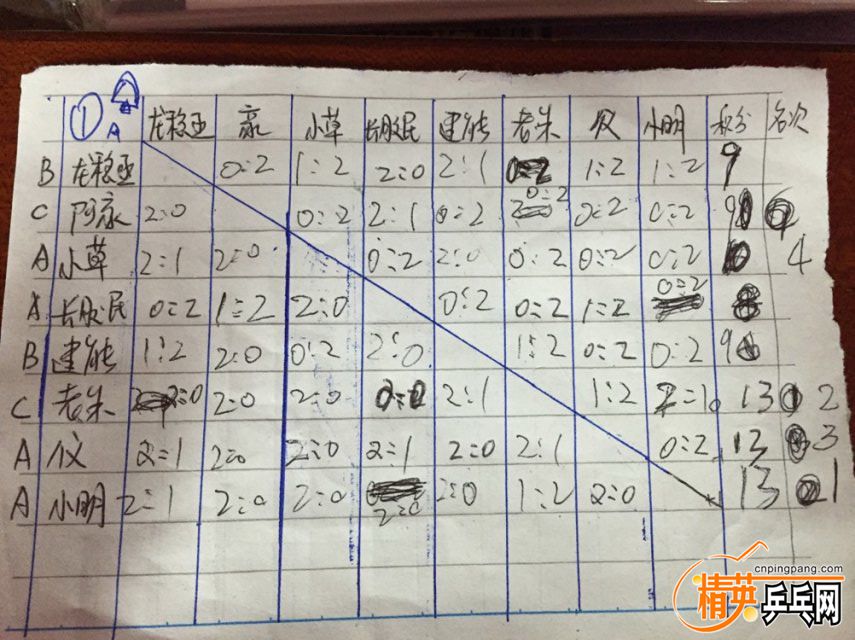 ① A 龙稳亚 豪 小草 长胶民 建能 老朱 仪 小明 积分 名次
B 龙稳亚 0:2 1:2 2:0 2:1 0:2 1:2 1:2 9
C 阿豪 2:0 0:2 2:1 0:2 0:2 0:2 0:2 9
A 小草 2:1 2:0 0:2 2:0 0:2 0:2 0:2 10 4
A 长胶民 0:2 1:2 2:0 0:2 0:2 1:2 0:2 8
B 建能 1:2 2:0 0:2 2:0 1:2 0:2 0:2 9
C 老朱 2:0 2:0 2:0 2:0 2:1 1:2 2:1 13 2
A 仪 2:1 2:0 2:0 2:1 2:0 2:1 0:2 13 3
A 小明 2:1 2:0 2:0 2:0 2:0 1:2 2:0 13 1
cnpingpang.com
精英乒乓网